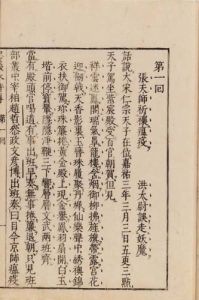 第一回
張天師祈禳瘟疫 洪太尉誤走妖魔
話說大宋仁宗天子在位嘉祐三年三月三日五更三點
天子駕坐紫宸殿受百官朝賀但見
祥雲迷鳳閣瑞氣罩龍樓含烟御柳拂旌旗帶露宮花
迎劍戟天香影裏玉簪珠履聚丹墀仙樂聲中綉襖錦
衣扶御駕珍珠簾捲黃金殿上現金轝鳳羽扇開白玉
堦前停寶輦隱隱淨鞭三下響層層文武兩班齊
當有殿頭官喝道有事出班早奏無事捲簾退朝只見班
部叢中宰相趙哲參政文彥博出班奏曰目今京師瘟疫